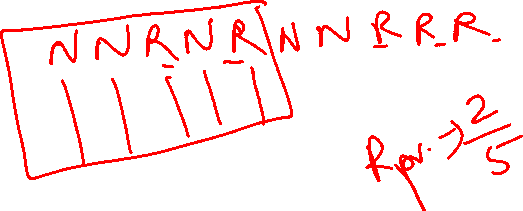 N N R N R N N R R R.
R pr. → 2/5